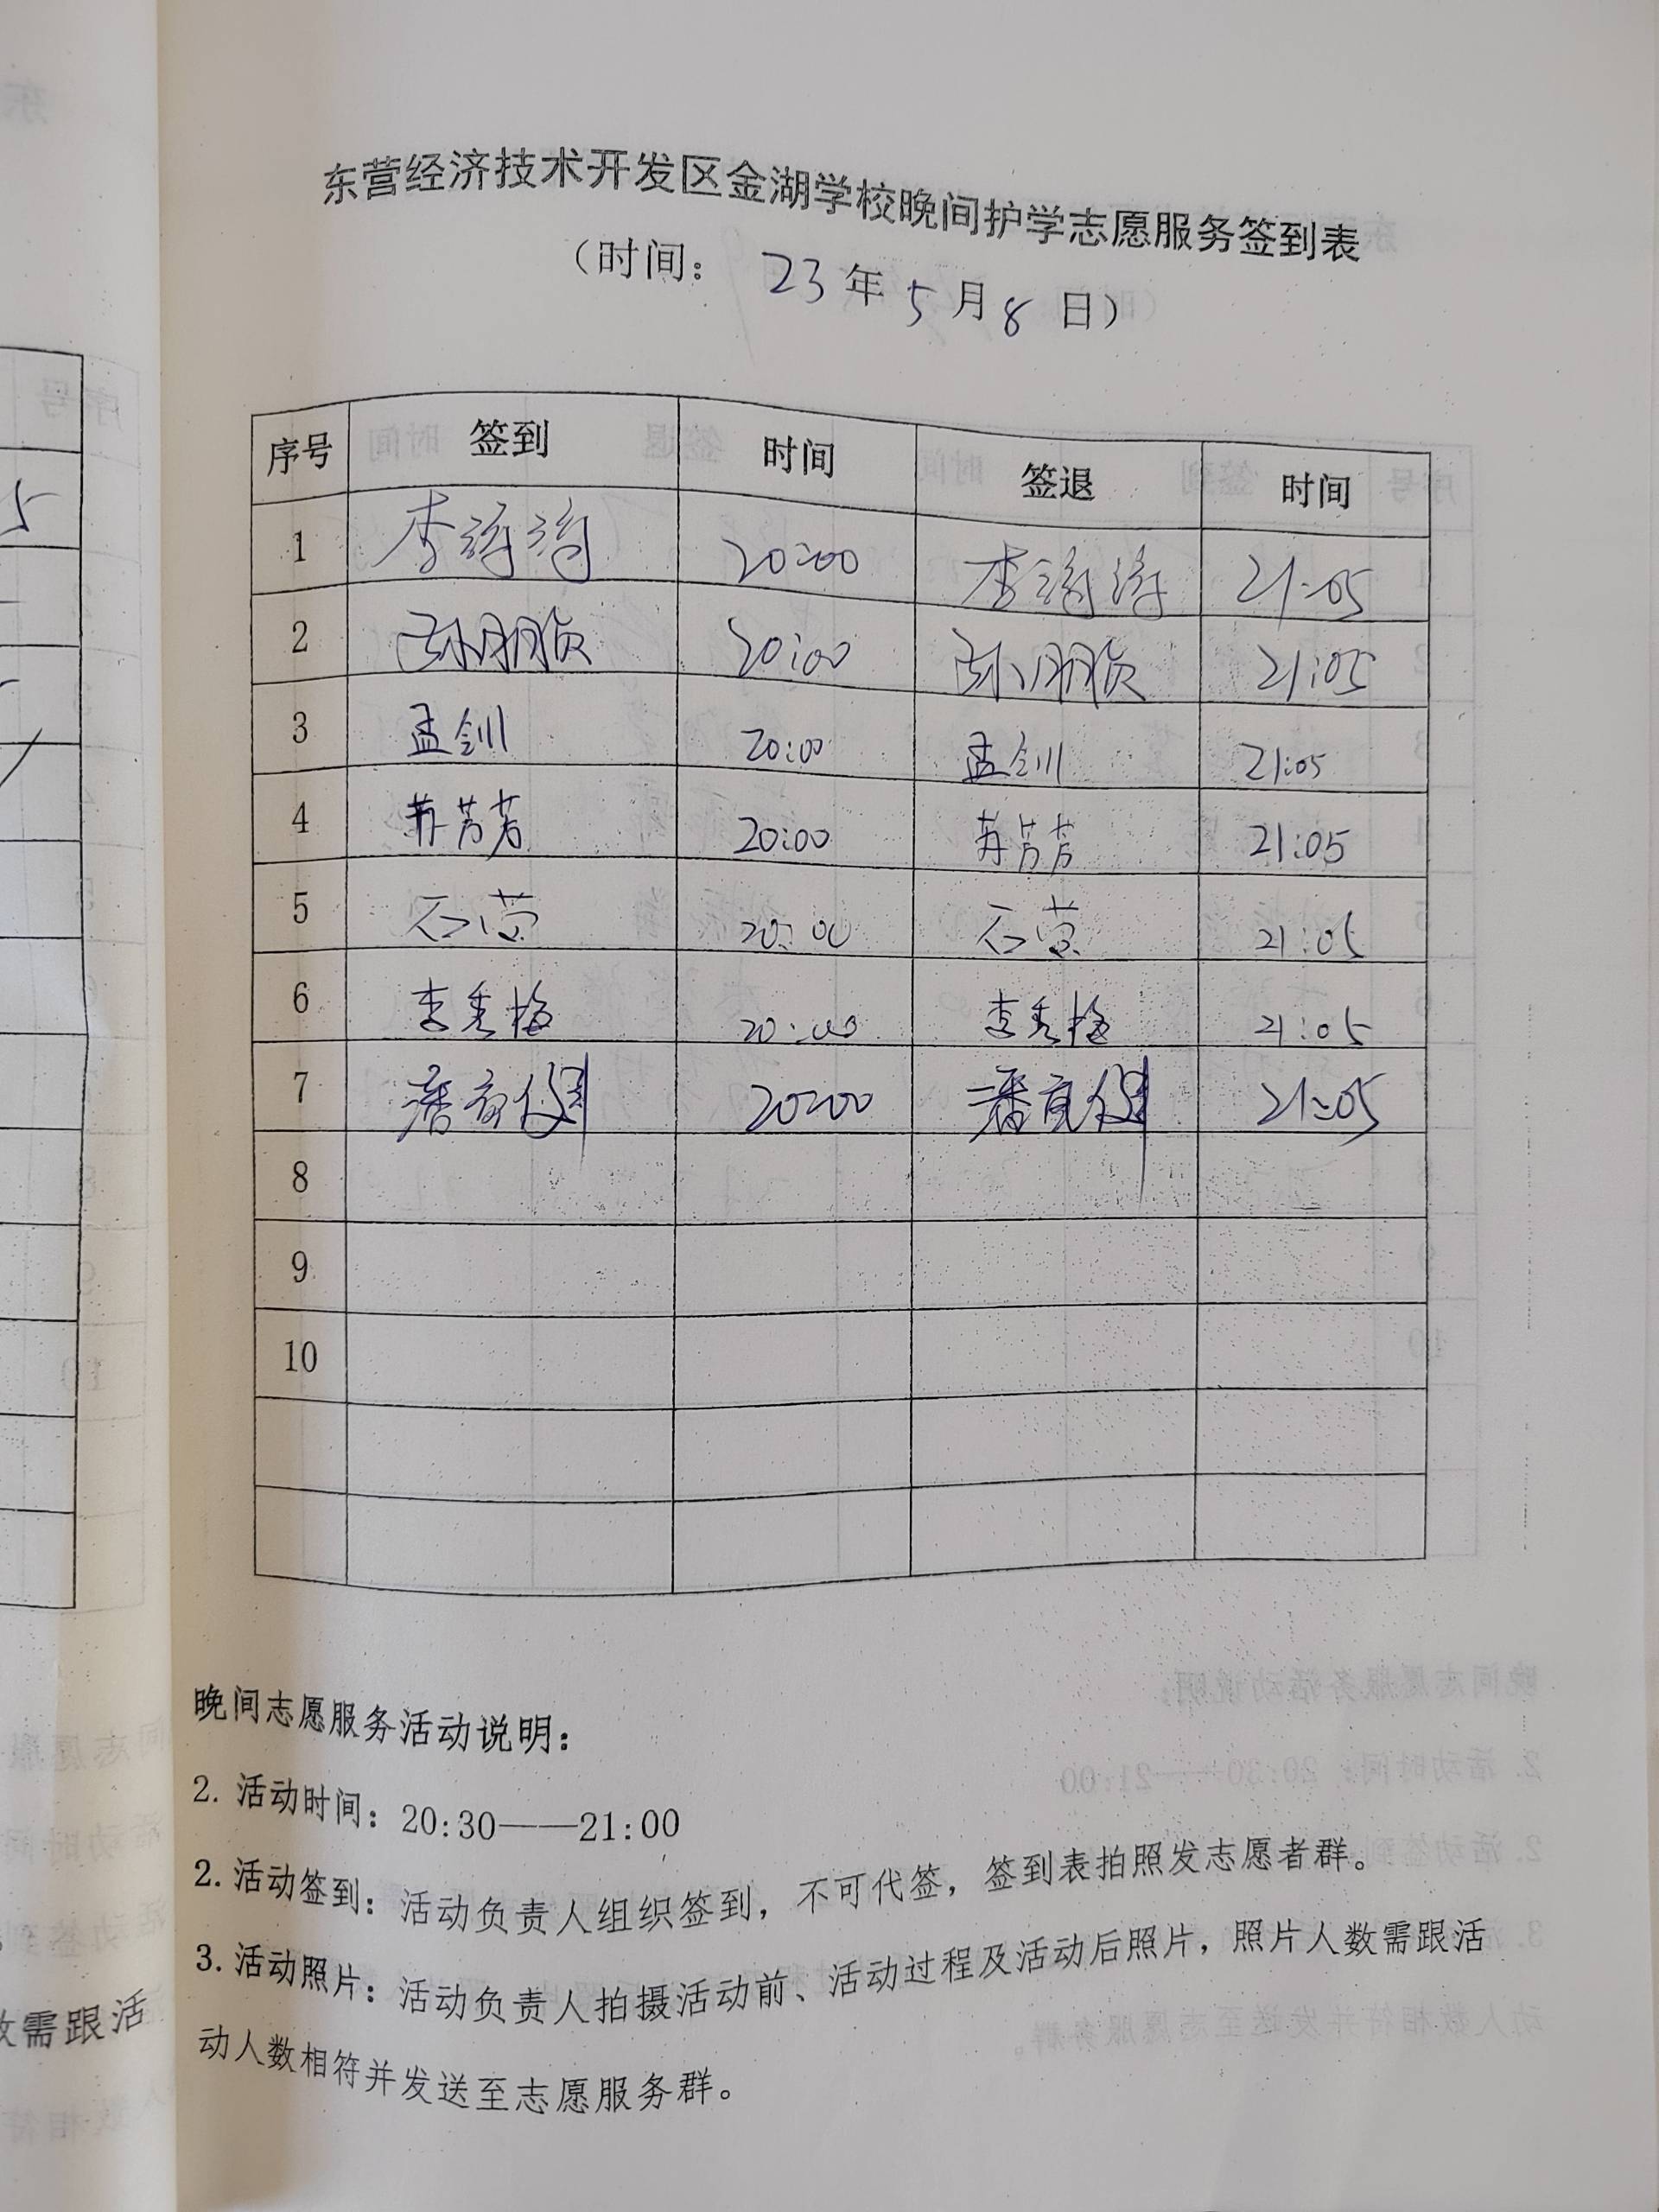 东营经济技术开发区金湖学校晚间护学志愿服务签到表
（时间： 23年5月8日）
序号 签到 时间 签退 时间
1 李涛涛 20:00 李涛涛 21:05
2 20:00 21:05
3 孟剑 20:00 孟剑 21:05
4 苏芳芳 20:00 苏芳芳 21:05
5 石营 20:00 石营 21:05
6 李秀梅 20:00 李秀梅 21:05
7 20:00 21:05
8
9
10
晚间志愿服务活动说明：
2. 活动时间：20:30——21:00
2. 活动签到：活动负责人组织签到，不可代签，签到表拍照发志愿者群。
3. 活动照片：活动负责人拍摄活动前、活动过程及活动后照片，照片人数需跟活
动人数相符并发送至志愿服务群。